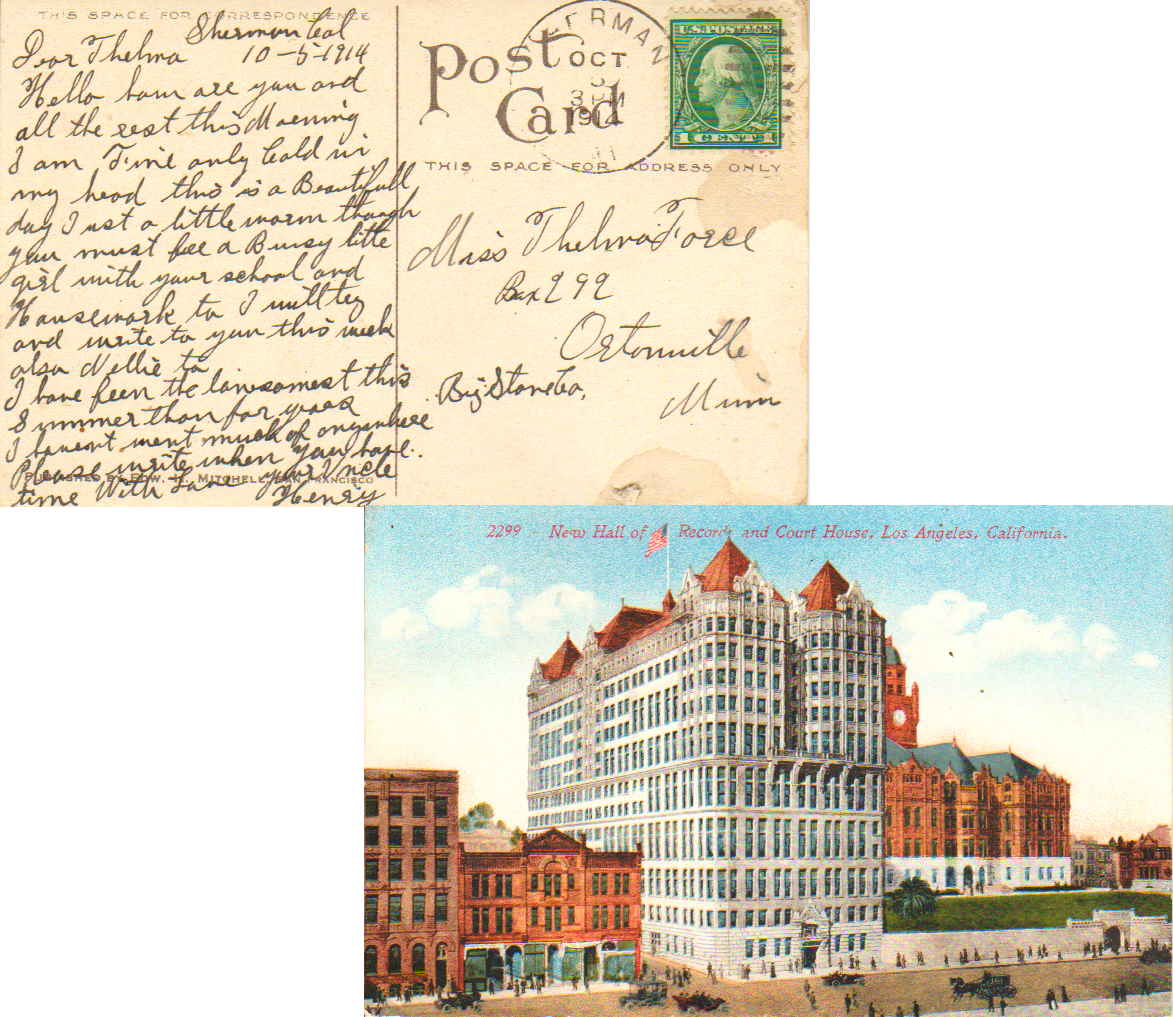 THIS SPACE FOR CORRESPONDENCE
Sherman Cal
Dear Thelma 10-5-1914
Hello haw are you and
all the rest this Morning
I am Fine only Cold in
my head this is a Beautifull
day Just a little warm though
you must bee a Buisy litte
girl with your school and
Housework to I will try
and write to you this week
also Nellie to
I have been the lonesomest this
Summer than for years
I havent went much of anywhere
Please write when you have
PUBLISHED BY EDW. H. MITCHELL, SAN FRANCISCO
time With Love your Uncle
Henry
Post
Card
SHERMAN
OCT
5
3 PM
1914
U.S. POSTAGE
1 CENT 1
THIS SPACE FOR ADDRESS ONLY
Miss Thelma Force
Box 292
Ortonville
Big Stone Co,
Minn
2299 - New Hall of Records and Court House, Los Angeles, California.